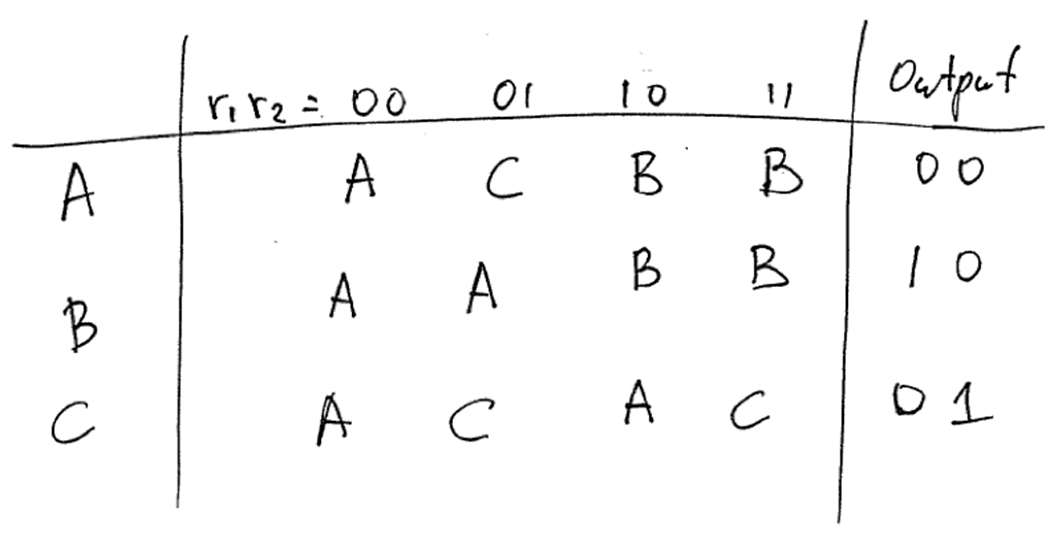 r₁ r₂ = 00 01 10 11 Output
A A C B B 00
B A A B B 10
C A C A C 01